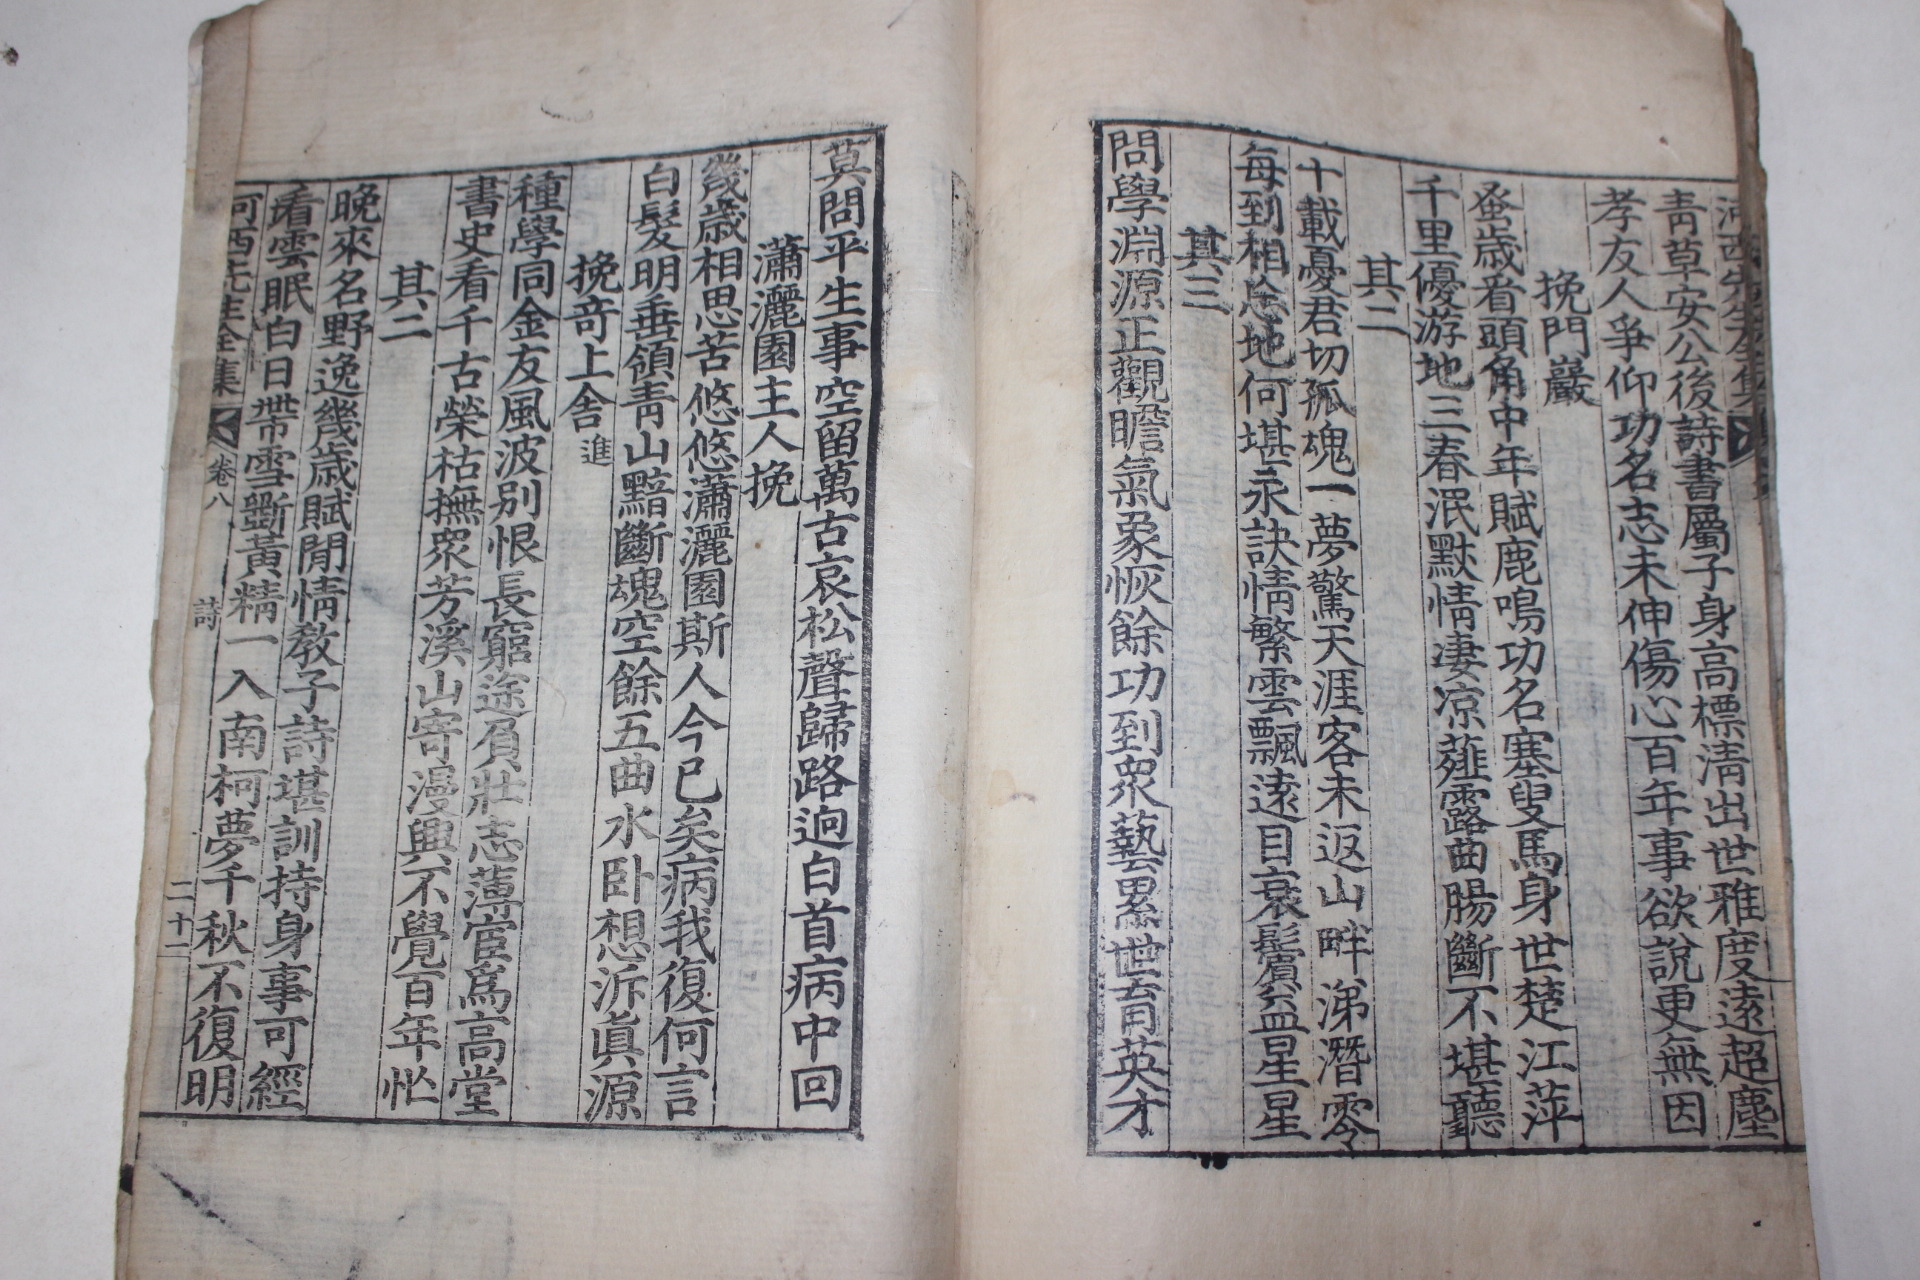 河西先生全集
靑草安公後詩書屬子身高標淸出世雅度遠超塵
孝友人爭仰功名志未伸傷心百年事欲說更無因
挽門巖
蚤歲看頭角中年賦鹿鳴功名塞叟馬身世楚江萍
千里優游地三春泯默情凄凉薤露曲腸斷不堪聽
其二
十載憂君切孤魂一夢驚天涯客未返山畔涕潛零
每到相念地何堪永訣情繁雲飄遠目衰鬢益星星
其三
問學淵源正觀瞻氣象恢餘功到衆藝累世育英才
莫問平生事空留萬古哀松聲歸路逈白首病中回
瀟灑園主人挽
幾歲相思苦悠悠瀟灑園斯人今已矣病我復何言
白髮明垂領靑山黯斷魂空餘五曲水臥想泝眞源
挽奇上舍進
種學同金友風波別恨長窮途負壯志薄宦爲高堂
書史看千古榮枯撫衆芳溪山寄漫興不覺百年忙
其二
晩來名野逸幾歲賦閒情敎子詩堪訓持身事可經
看雲眠白日帶雪斸黃精一入南柯夢千秋不復明
河西先生全集 卷八 詩 二十二